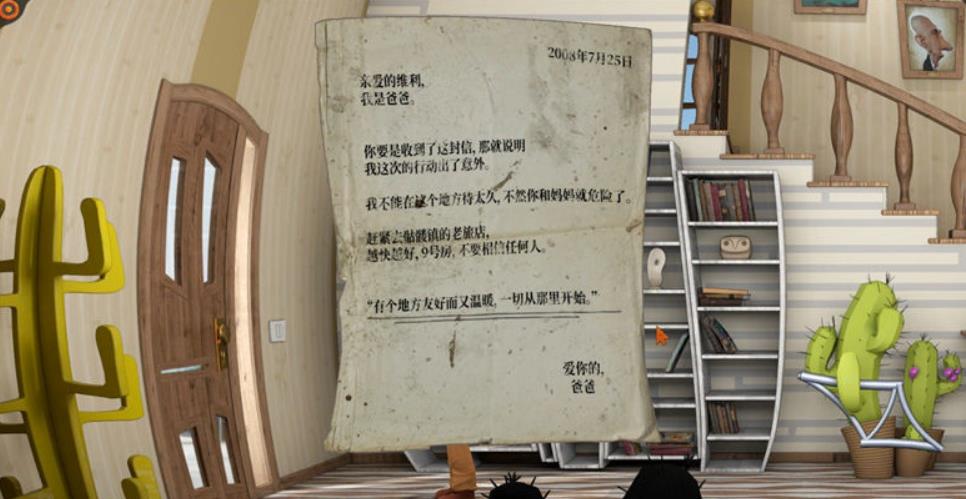 2008年7月25日
亲爱的维利,
我是爸爸。
你要是收到了这封信, 那就说明
我这次的行动出了意外。
我不能在这个地方待太久, 不然你和妈妈就危险了。
赶紧去骷髅镇的老旅店,
越快越好, 9号房, 不要相信任何人。
“有个地方友好而又温暖, 一切从那里开始。”
爱你的,
爸爸